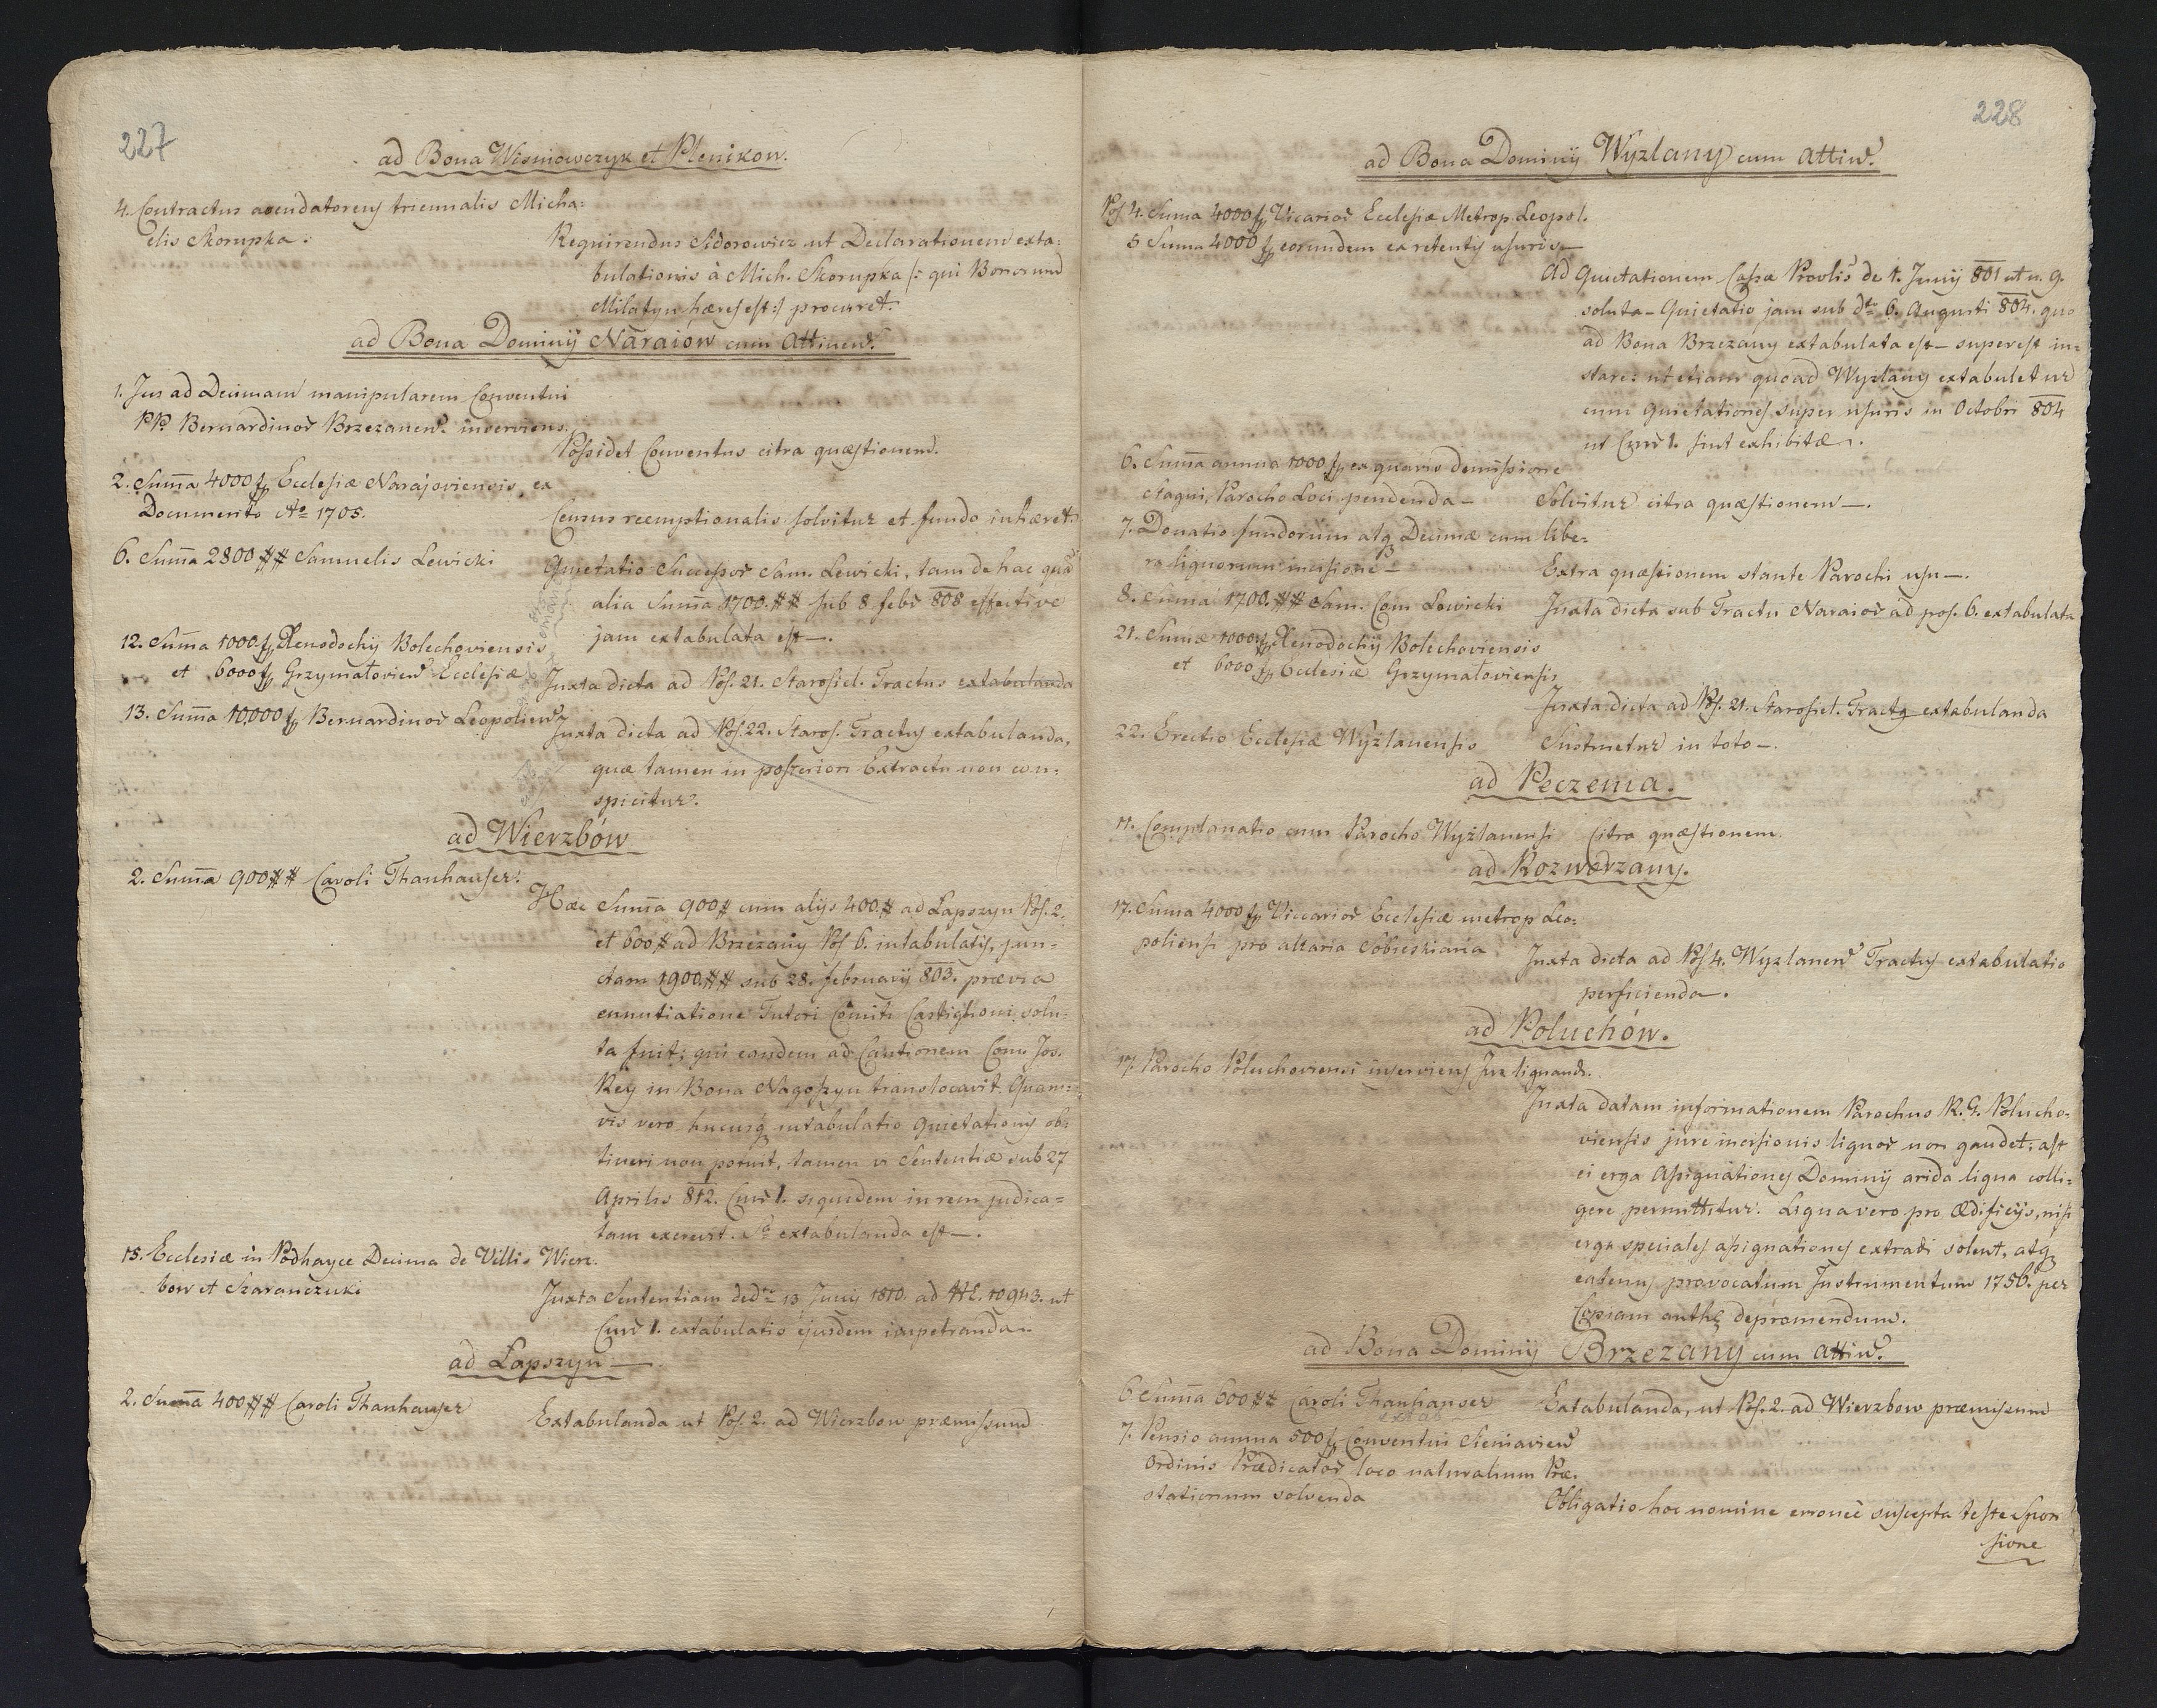 227
ad Bona Wisniowczyk et Plenikow.
4. Contractus arendatoreus triennalis Micha:
elis Skorupka.
Requirendus Sidorowicz ut Declarationem exta:
bulationis à Mich. Skorupka /: qui Bonorum
Milatyn hæres est :/ procuret.
ad Bona Dominÿ Naraiow cum Attinen.
1. Jus ad Decimam manipularem Conventui
PP. Bernardinor Brzezanen. inserviens.
Possidet Conventus citra quæstionem.
2. Suma 4000 f Ecclesiæ Narajoviensis, ex
Documento Ao 1705.
Census reemptionalis solvitur et fundo inhæret.
6. Suma 2800 ## Samuelis Lewicki
Quietatio Successor Sam. Lewicki, tam de hac quã
alia Suma 1700. ## sub 8 febr 808 effective
jam extabulata est —.
12. Suma 1000. f Xenodochÿ Bolechoviensis
et 6000 f Grzymałovien Ecclesiæ
Juxta dicta ad Pos. 21. Starosiel. Tractus extabulanda
13. Suma 10,000 f Bernardinor Leopolien.
Juxta dicta ad Pos. 22. Staros. Tractus extabulanda,
quæ tamen in posteriori Extractu non con:
spicitur.
ad Wierzbów
2. Suma 900 ## Caroli Thanhauser.
Hæc Suma 900 # cum alÿs 400. # ad Lapszyn Pos. 2.
et 600 # ad Brzezany Pos 6. intabulatis, jun=
ctam 1900. ## sub 28. februarÿ 803. prævia
enuntiatione Tutori Comiti Castiglioni solu=
ta fuit; qui eandem ad Cautionem Com. Jos.
Rey in Bona Nagoszyn translocavit. Quam=
vis vero hucusq intabulatio quietationis ob:
tineri non potuit, tamen vi Sententiæ sub 27
Aprilis 812. Cur 1. siquidem in rem judica=
tam excrevit. Sa extabulanda est —.
15. Ecclesiæ in Podhayce Decima de Villis Wierz.
bow et Szaranczuki
Juxta Sententiam ddto 13 Junÿ 1810. ad NE. 10943. ut
Cur 1. extabulatio ejusdem impetranda.
ad Lapszyn —.
2. Suma 400 ## Caroli Thanhauser
Extabulanda ut Pos. 2. ad Wierzbow præmissum
228
ad Bona Dominÿ Wyzlany cum Attin.
Pos 4. Suma 4000 f Vicarior Ecclesiæ Metrop. Leopol.
5 Suma 4000 f eorundem ex retentis usuris —
Ad Quietationem Cassæ Provlis de 1. Junÿ 801 ut n. 9.
soluta – Quietatio jam sub dto 6. Augusti 804. quo
ad Bona Brzezany extabulata est – superest in=
stare: ut etiam quoad Wyzlany extabuletur
cum quietationes super usuris in Octobri 804
ut Cur 1. sint exhibitæ.
6. Suma annua 1000 f ex quaris demissione
Stagni, Parocho Loci pendenda —
Solvitur citra quæstionem —.
7. Donatio fundorum atq Decimæ cum libe:
ra lignorum incisione —
Extra quæstionem stante Parochi usu —.
8. Suma 1700. ## Sam. Com Lewicki
Juxta dicta sub Tractu Naraior ad pos. 6. extabulata
21. Sumæ 1000 f Xenodochÿ Bolechoviensis
et 6000 f Ecclesiæ Grzymałoviensis
Juxta dicta ad Pos. 21. Starosiel. Tractq extabulanda
22. Erectio Ecclesiæ Wyżlanensis
Sustinetur in toto —.
ad Peczenia.
11. Complanatio cum Parocho Wyżlanensi
Citra quæstionem.
ad Rozwerzany.
17. Suma 4000 f Viccarior Ecclesiæ metrop Leo:
poliensi pro altaria Sobieskiana
Juxta dicta ad Pos 4. Wyzlanen Tractus extabulatio
perficienda.
ad Poluchów.
17. Parocho Poluchoviensi inserviens Jus lignandi.
Juxta datam informationem Parochus R. G. Polucho:
viensis jure incisionis lignor non gaudet; ast
ei erga Assignationes Dominÿ arida ligna colli:
gere permittitur. Ligna vero pro Ædificÿs, nisi
erga speciales assignationes extradi solent, atq
eatenus provocatum Instrumentum 1756. per
Copiam auth depromendum.
ad Bona Dominÿ Brzezany cum Attin.
6. Suma 600 ## Caroli Thanhauser
extab
Extabulanda, ut Pos. 2. ad Wierzbow præmissum
7. Pensio annua 500 f Conventui Sieniavien
Ordinis Prædicator loco naturalium Præ.
stationum solvenda
Obligatio hoc nomine erroneè suscepta teste Spon
sione